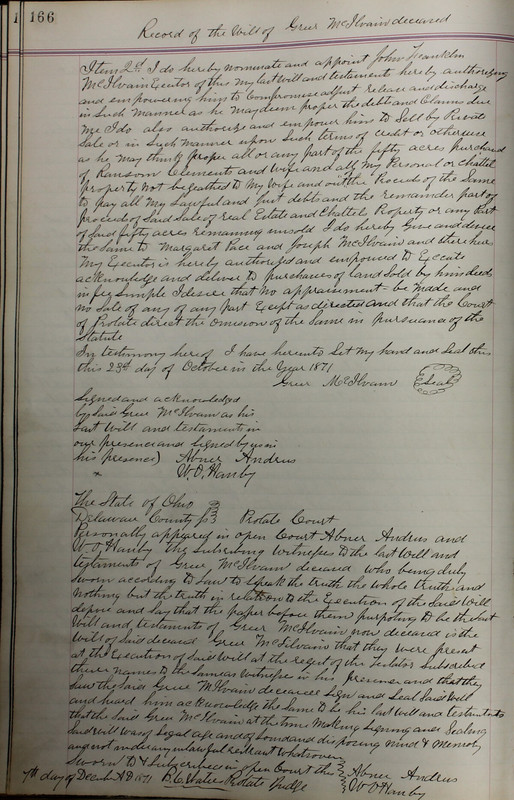 166
Record of the Will of Greer McIlvain deceased
Item 2d. I do hereby nominate and appoint John Franklin
McIlvain Executor of this my last will and testament hereby authorizing
and empowering him to compromise adjust release and discharge
in such manner as he may deem proper the debts and Claims due
me I do also authorize and empower him to Sell by Private
Sale or in such manner upon such terms of credit or otherwise
as he may think proper all or any part of the fifty acres purchased
of Ransom Clements and wife and all my Personal or Chattel
property not bequeathed to my wife and out of the Proceeds of the Same
to pay all my Lawful and Just debts and the remainder part of
proceeds of said sale of real Estate and Chattels Property or any part
of said fifty acres remaining unsold I do hereby Give and devise
the Same to Margaret Pace and Joseph McIlvain and there heirs
My Executor is hereby authorized and empowered to Excute
acknowledge and deliver to purchasers of land Sold by him deeds
in fee Simple I desire that no appraisment be made and
no sale of any of any part Except as directed and that the Court
of Probate direct the omission of the Same in pursuance of the
Statute
In testimony hereof I have hereunto Set my hand and Seal this
this 23d day of October in the Year 1871
Greer McIlvain (Seal)
Signed and acknowledged
by said Greer McIlvain as his
Last Will and testament in
our presence and signed by us in
his presence) Abner Andrus
W. O. Hanby
The State of Ohio
Delaware County ss Probate Court
Personally appeared in open Court Abner Andrus and
W. O. Hanby the Subscribing witnesses to the last Will and
testament of Greer McIlvain deceased who being duly
Sworn according to Law to speak the truth the whole truth and
nothing but the truth in relation to the Execution of the said Will
depose and say that the paper before them purpoting to be the last
Will and testament of Greer McIlvain now deceased is the
Will of said deceased Greer McIlvain that they were present
at the Execution of said Will at the reqest of the Testator Subscribed
there names to the Same as Witnesses in his presence and that they
Saw the said Greer McIlvain deceased Sign and Seal said Will
and heard him acknowledge the Same to be his last Will and testament
that the said Greer McIlvain at the time Making Signing and Sealing
said Will was of Legal age and of Sound and disposing mind & Memory
and not under any unlawful restraint whatsoever
Sworn to & Subscribed in open Court this Abner Andrus
7th day of Decemb AD 1871 Probate Judge W. O. Hanby